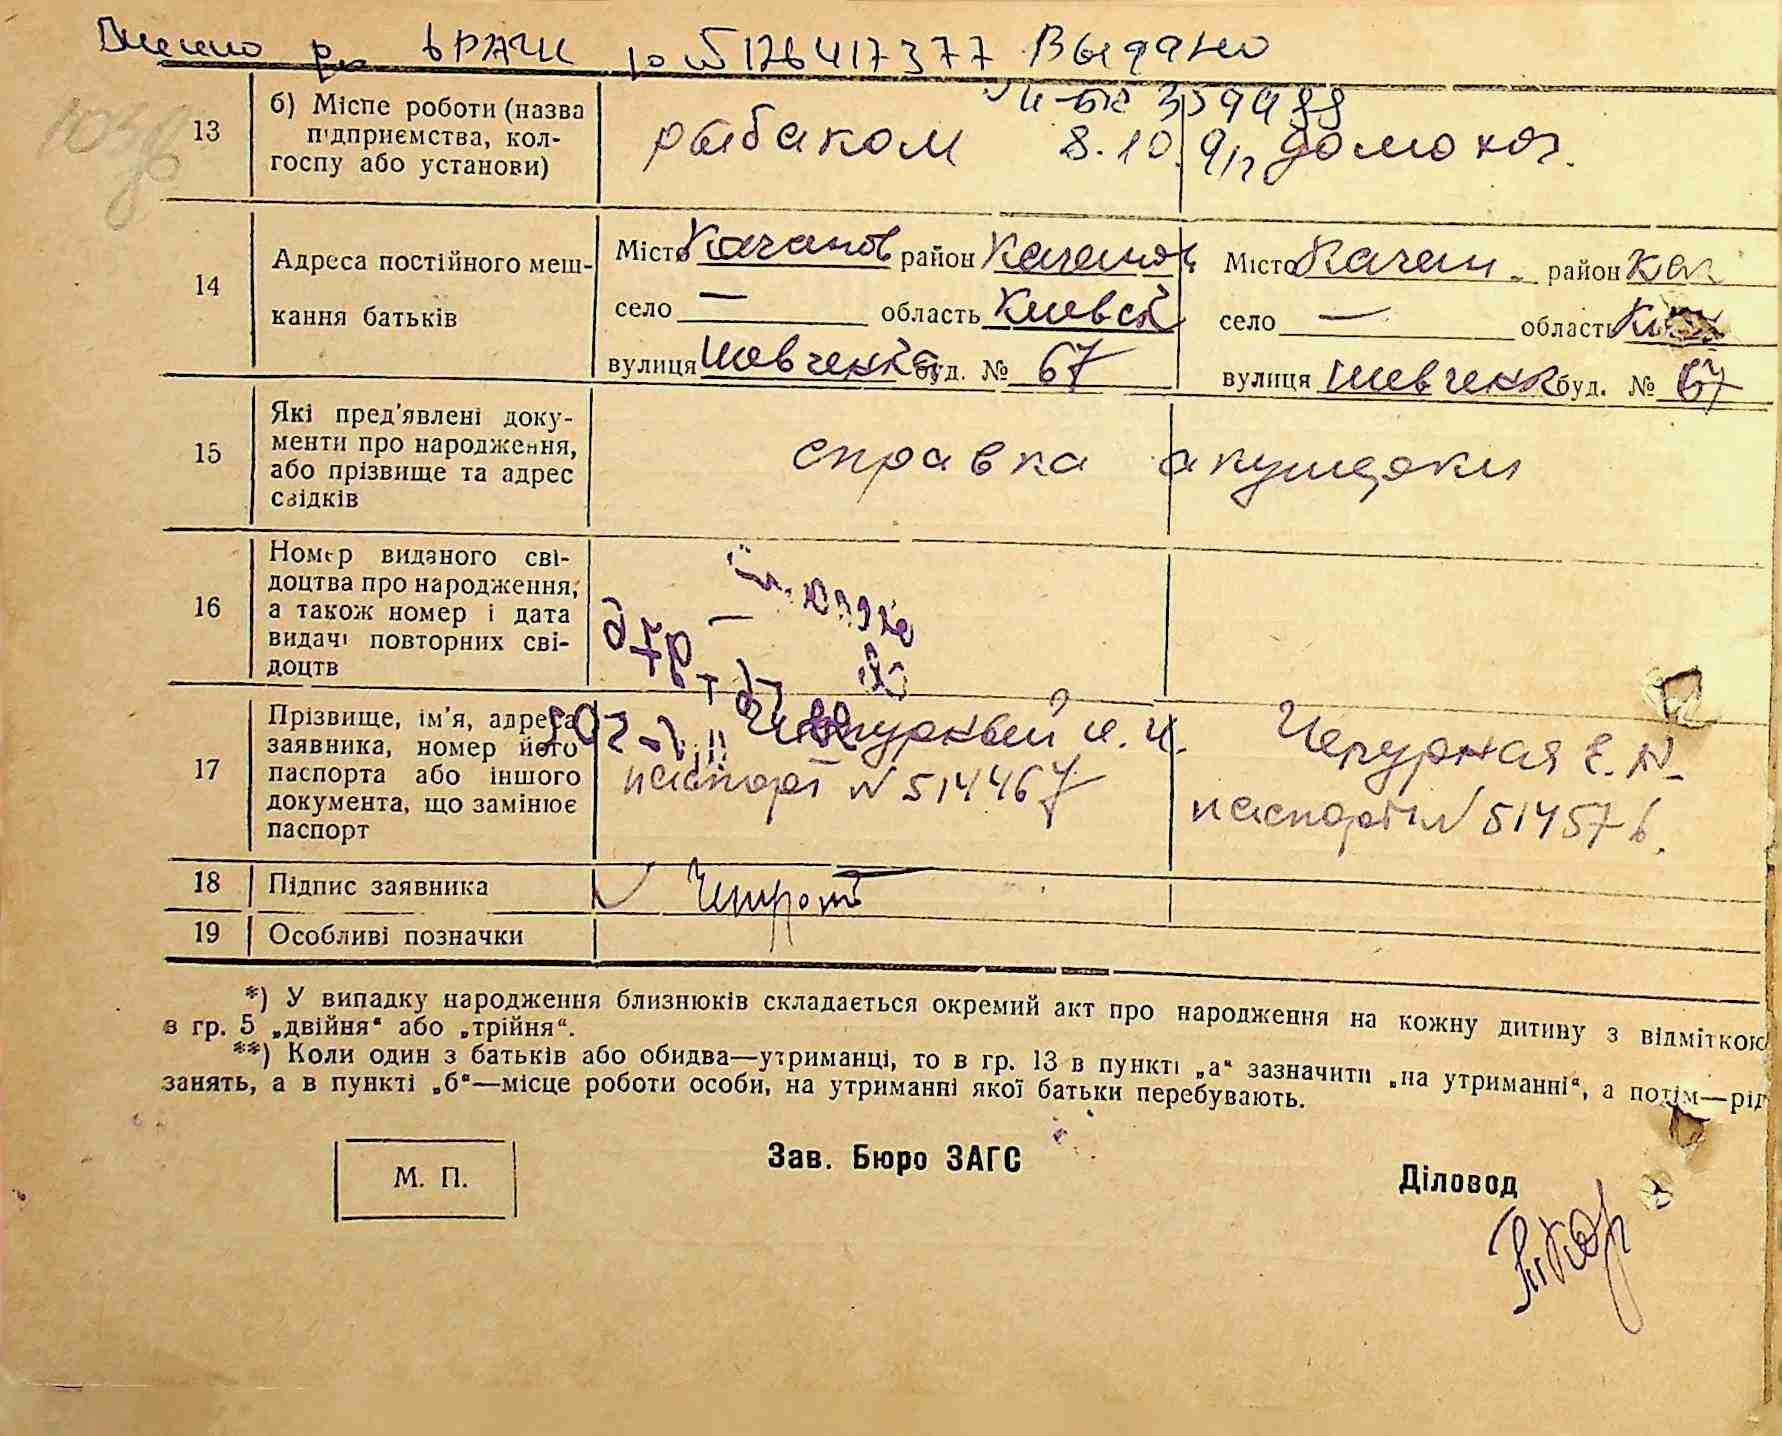 Внесено до ДРАЦС 126417377 Выдано
359988
13
б) Місце роботи (назва
підприємства, кол-
госпу або установи)
рыбаком 8.10. домохоз.
14
Адреса постійного меш-
кання батьків
Місто Каганов район Каганов. Місто Каган. район Каг
село — область Киевск село — область
вулиця Шевченка буд. № 67 вулиця Шевченк буд. № 67
15
Які пред'явлені доку-
менти про народження,
або прізвище та адрес
свідків
справка акушерки
16
Номер виданого сві-
доцтва про народження,
а також номер і дата
видачі повторних сві-
доцтв
17
Прізвище, ім'я, адреса
заявника, номер його
паспорта або іншого
документа, що замінює
паспорт
Чепурный И. И.
паспорт N 514467
Чепурная Е. N.
паспорт N 514576.
18 Підпис заявника
19 Особливі позначки
*) У випадку народження близнюків складається окремий акт про народження на кожну дитину з відміткою
в гр. 5 „двійня“ або „трійня“.
**) Коли один з батьків або обидва—утриманці, то в гр. 13 в пункті „а“ зазначити „на утриманні“, а потім—рід
занять, а в пункті „б“—місце роботи особи, на утриманні якої батьки перебувають.
М. П.
Зав. Бюро ЗАГС
Діловод